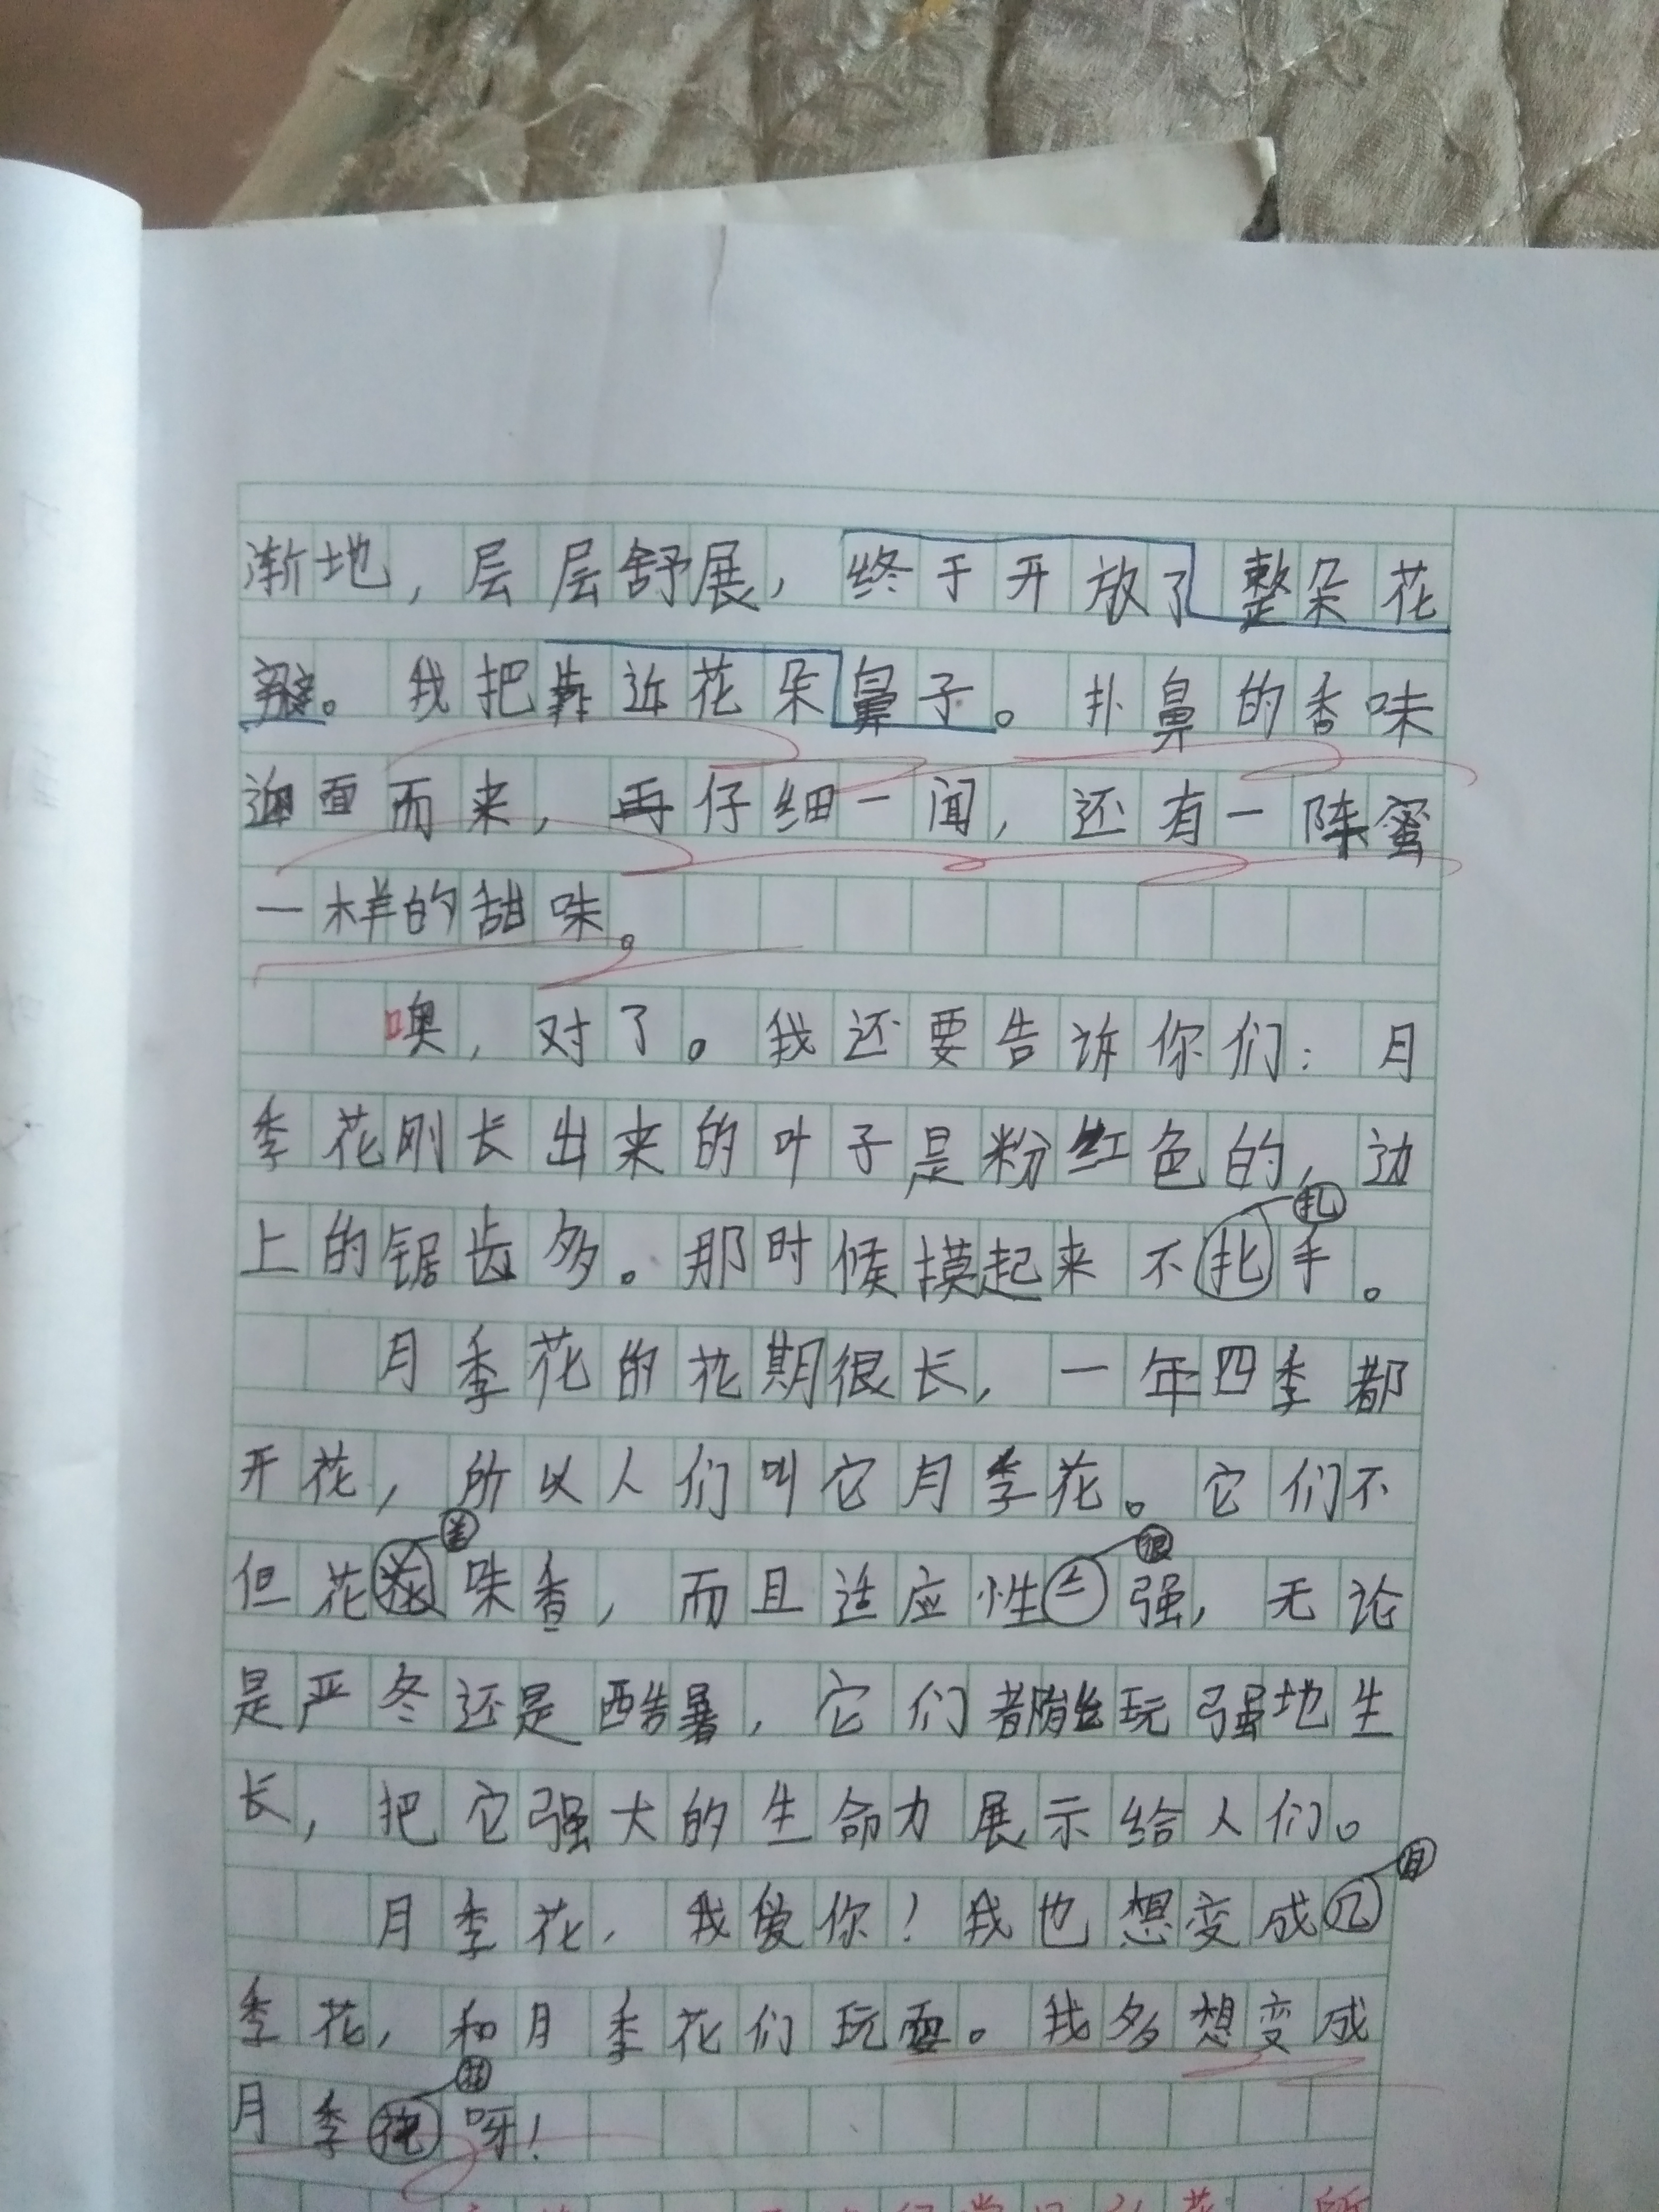 渐地，层层舒展，终于开放了整朵花
瓣。我把靠近花朵鼻子。扑鼻的香味
迎面而来，再仔细一闻，还有一阵蜜
一样的甜味。
噢，对了。我还要告诉你们：月
季花刚长出来的叶子是粉红色的，边
扎
上的锯齿多。那时候摸起来不扎手。
月季花的花期很长，一年四季都
开花，所以人们叫它月季花。它们不
美 很
但花味香，而且适应性强，无论
是严冬还是酷暑，它们都能玩强地生
长，把它强大的生命力展示给人们。
月
月季花，我爱你！我也想变成
季花，和月季花们玩耍。我多想变成
花
月季花呀！